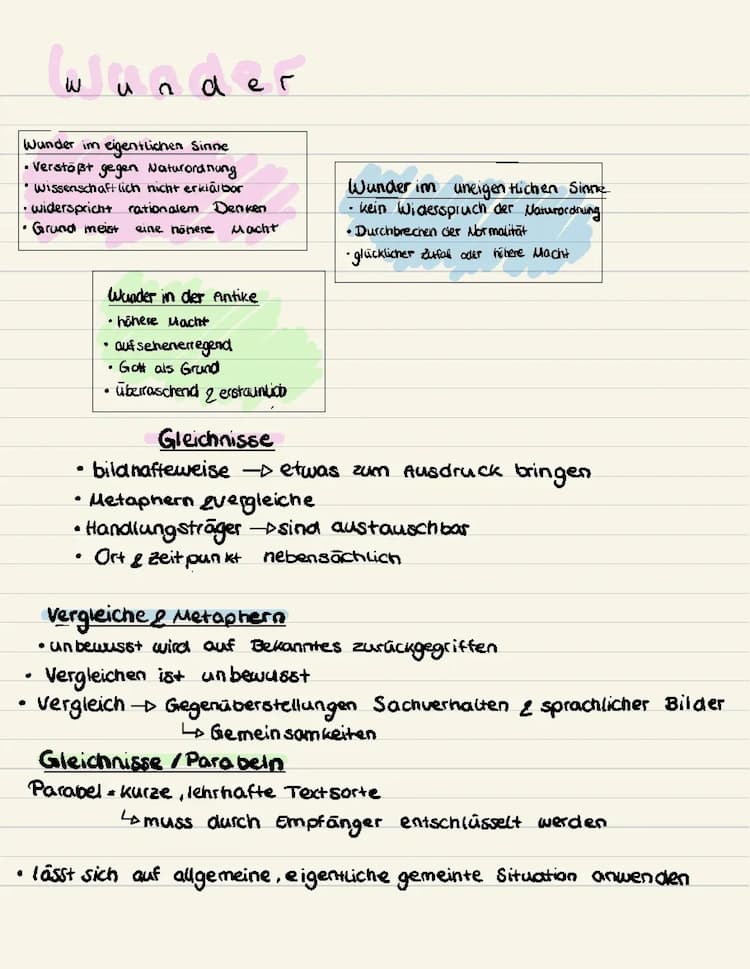 Wunder
w u n d e r
Wunder im eigentlichen Sinne
• Verstößt gegen Naturordnung
• wissenschaftlich nicht erklärbar
• widerspricht rationalem Denken
• Grund meist eine höhere Macht
Wunder im uneigentlichen Sinne
• kein Widerspruch der Naturordnung
• Durchbrechen der Normalität
• glücklicher Zufall oder höhere Macht
Wunder in der Antike
• höhere Macht
• aufsehenerregend
• Gott als Grund
• überraschend & erstaunlich
Gleichnisse
• bildhafteweise → etwas zum Ausdruck bringen
• Metaphern & vergleiche
• Handlungsträger → sind austauschbar
• Ort & Zeitpunkt nebensächlich
Vergleiche & Metaphern
• unbewusst wird auf Bekanntes zurückgegriffen
• Vergleichen ist unbewusst
• Vergleich → Gegenüberstellungen Sachverhalten & sprachlicher Bilder
↳ Gemeinsamkeiten
Gleichnisse / Parabeln
Parabel = kurze, lehrhafte Textsorte
↳ muss durch Empfänger entschlüsselt werden
• lässt sich auf allgemeine, eigentliche gemeinte Situation anwenden